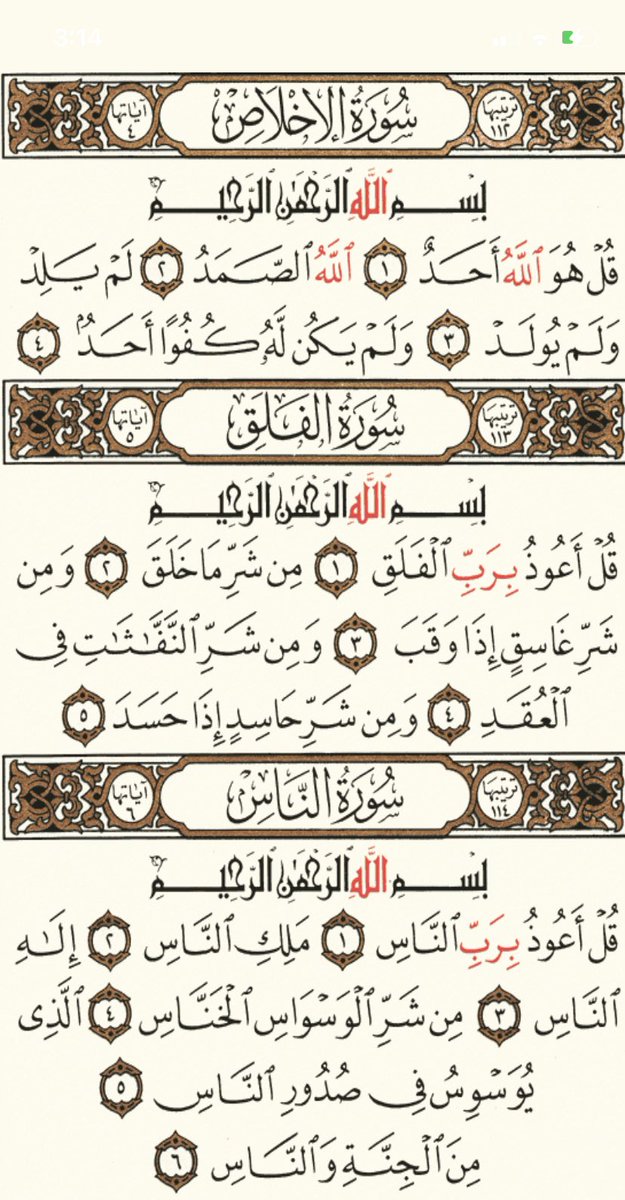 3:14
ترتيبها ١١٢ سُورَةُ الإِخْلَاصِ آياتها ٤
بِسْمِ ٱللَّهِ ٱلرَّحْمَٰنِ ٱلرَّحِيمِ
قُلْ هُوَ ٱللَّهُ أَحَدٌ ١ ٱللَّهُ ٱلصَّمَدُ ٢ لَمْ يَلِدْ
وَلَمْ يُولَدْ ٣ وَلَمْ يَكُن لَّهُۥ كُفُوًا أَحَدٌۢ ٤
ترتيبها ١١٣ سُورَةُ الفَلَقِ آياتها ٥
بِسْمِ ٱللَّهِ ٱلرَّحْمَٰنِ ٱلرَّحِيمِ
قُلْ أَعُوذُ بِرَبِّ ٱلْفَلَقِ ١ مِن شَرِّ مَا خَلَقَ ٢ وَمِن
شَرِّ غَاسِقٍ إِذَا وَقَبَ ٣ وَمِن شَرِّ ٱلنَّفَّٰثَٰتِ فِى
ٱلْعُقَدِ ٤ وَمِن شَرِّ حَاسِدٍ إِذَا حَسَدَ ٥
ترتيبها ١١٤ سُورَةُ النَّاسِ آياتها ٦
بِسْمِ ٱللَّهِ ٱلرَّحْمَٰنِ ٱلرَّحِيمِ
قُلْ أَعُوذُ بِرَبِّ ٱلنَّاسِ ١ مَلِكِ ٱلنَّاسِ ٢ إِلَٰهِ
ٱلنَّاسِ ٣ مِن شَرِّ ٱلْوَسْوَاسِ ٱلْخَنَّاسِ ٤ ٱلَّذِى
يُوَسْوِسُ فِى صُدُورِ ٱلنَّاسِ ٥
مِنَ ٱلْجِنَّةِ وَٱلنَّاسِ ٦